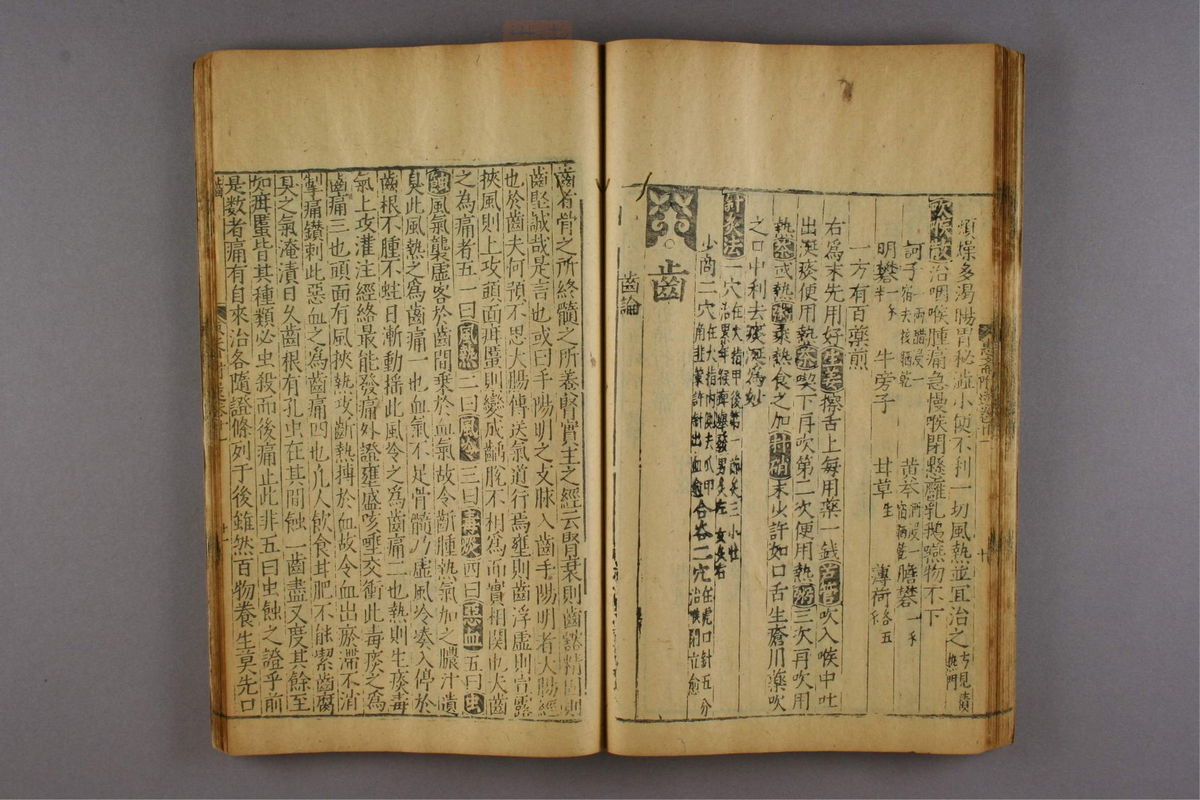 煩燥多渴腸胃秘澁小便不利一切風熱並宜治之方見積熱門
吹喉散治咽喉腫痛急慢喉閉懸壅乳鵝嚥物不下
訶子一兩醋浸一宿去核晒乾 黄芩酒浸一宿晒乾 膽礬一錢
明礬一錢半 牛旁子 甘草生 薄荷各五錢
一方有百藥煎
右為末先用好生姜擦舌上每用藥一錢芦管吹入喉中吐
出涎痰便用熱茶喫下再吹第二次便用熱粥三次再吹用
熱茶或熱粥乘熱食之加朴硝末少許如口舌生瘡用藥吹
之口中利去痰涎為妙
針灸法一穴在大指甲後第一節灸三小壯
治累年喉痺舉發男灸左女灸右
少商二穴在大指內側去爪甲角韭葉許針出血愈合谷二穴在虎口針五分治喉閉立愈
齒
齒論
齒者骨之所終髓之所養腎實主之經云腎衰則齒豁精固則
齒堅誠哉是言也或曰手陽明之支脉入齒手陽明者大腸經
也於齒夫何預不思大腸傳送氣道行焉壅則齒浮虛則宣露
挾風則上攻頭面疳䘌則變成齲脫不相為而實相関也夫齒
之為痛者五一曰風熱二曰風冷三曰毒痰四曰惡血五曰虫
蝕風氣襲虛客於齒間乘於血氣故令齗腫熱氣加之膿汁潰
臭此風熱之為齒痛一也血氣不足骨髓乃虛風冷凑入停於
齒根不腫不蛀日漸動搖此風冷之為齒痛二也熱則生痰毒
氣上攻灌注經絡最能發痛外證壅盛咳唾交衝此毒痰之為
齒痛三也頭面有風挾熱攻齗熱搏於血故令血出瘀滯不消
掣痛鑽刺此惡血之為齒痛四也凡人飲食其肥不能潔齒腐
臭之氣淹漬日久齒根有孔虫在其間蝕一齒盡又度其餘至
如疳䘌皆其種類必虫殺而後痛止此非五曰虫蝕之證乎前
是数者痛有自來治各隨證條列于後雖然百物養生莫先口